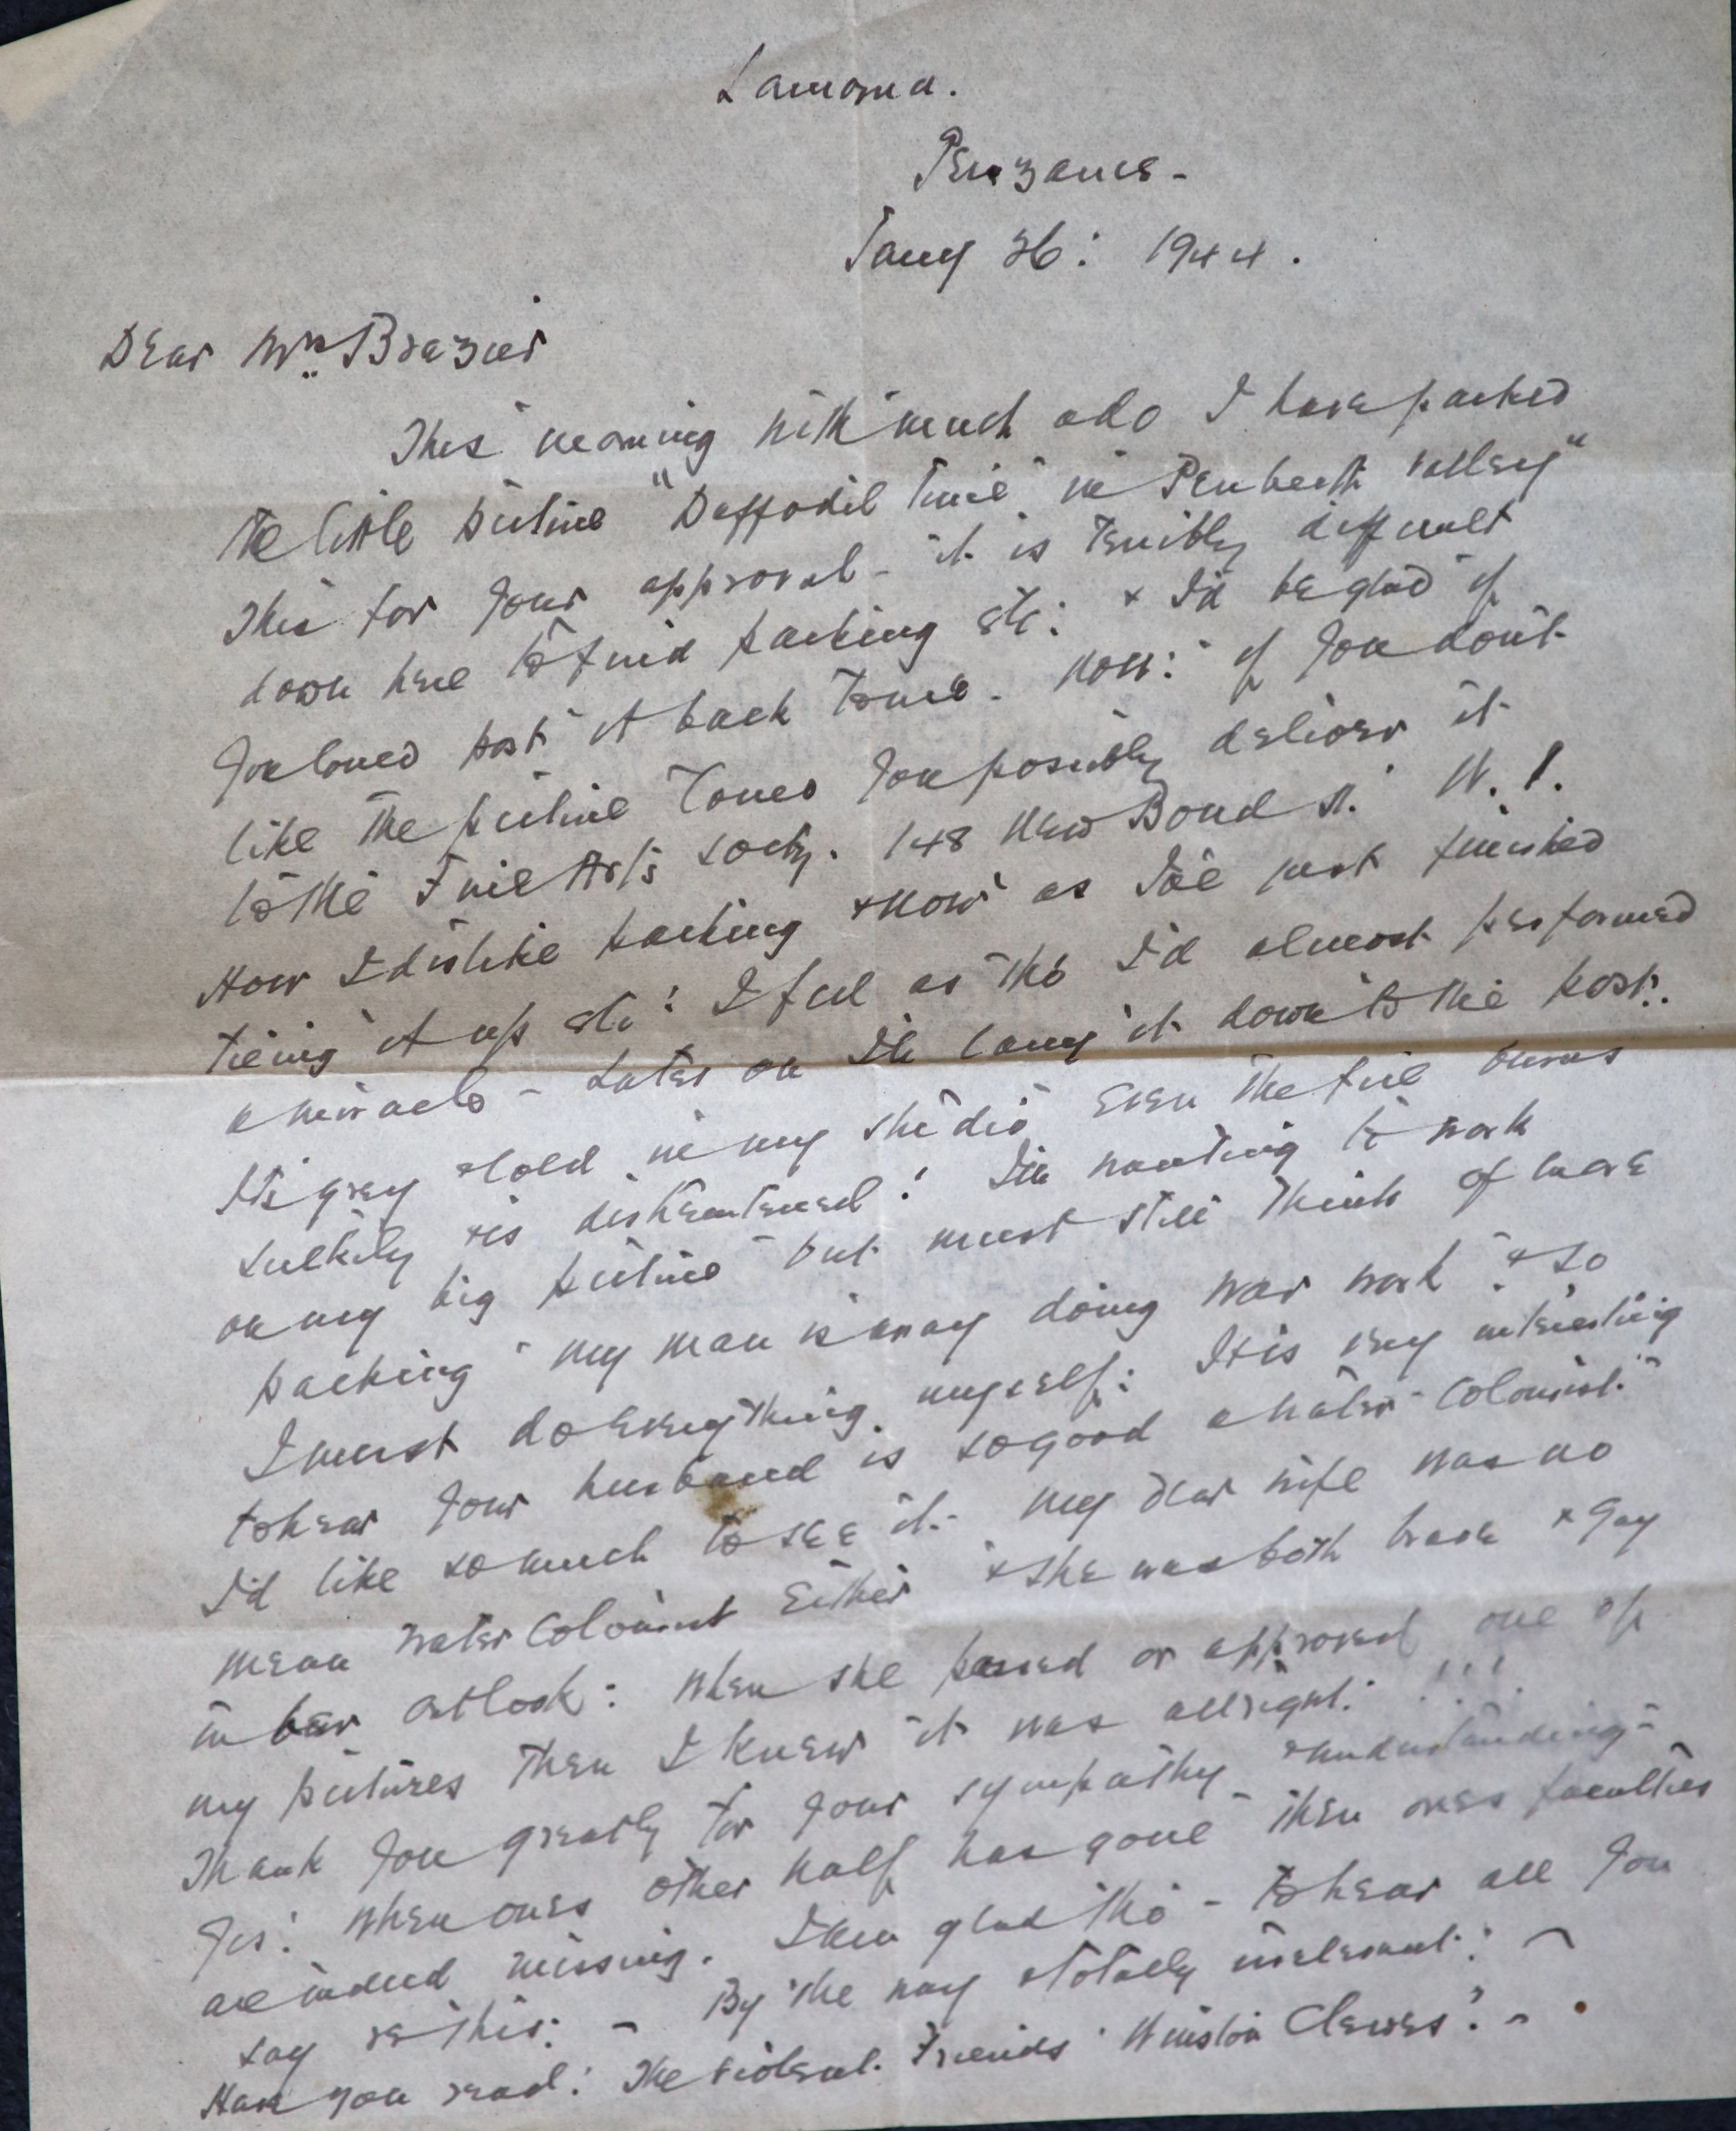 Lamorna.
Penzance -
Jany 26: 1944.
Dear Mrs. Brazier
This morning with much ado I have packed
the little picture "Daffodil Time in Penberth valley"
this for your approval - it is terribly difficult
down here to find packing etc: & I'd be glad if
you loved post it back to me - now: if you don't
like the picture could you possibly deliver it
to the Fine Arts Socty. 148 New Bond St. W.1.
How I dislike packing & now as I've just finished
tieing it up etc: I feel as tho I'd almost performed
a miracle - Later on I'll carry it down to the post:
It's grey & cold in my studio even the fire burns
sulkily & is disheartened! I'm wanting to work
on my big picture but must still think of more
packing - my man is away doing war work & so
I must do everything myself: It is very interesting
to hear your husband is so good a water-colourist.
I'd like so much to see it - my dear wife was no
mean water colourist either & she was both brave & gay
in her outlook: when she passed or approved one of
my pictures then I knew it was allright: !!!
Thank you greatly for your sympathy & understanding -
Yes: when ones other half has gone - then ones faculties
are indeed missing. I am glad tho - to hear all you
say re this: - By the way & totally irrelevant: -
Have you read: The Violent Friends: Winston Clewes? -